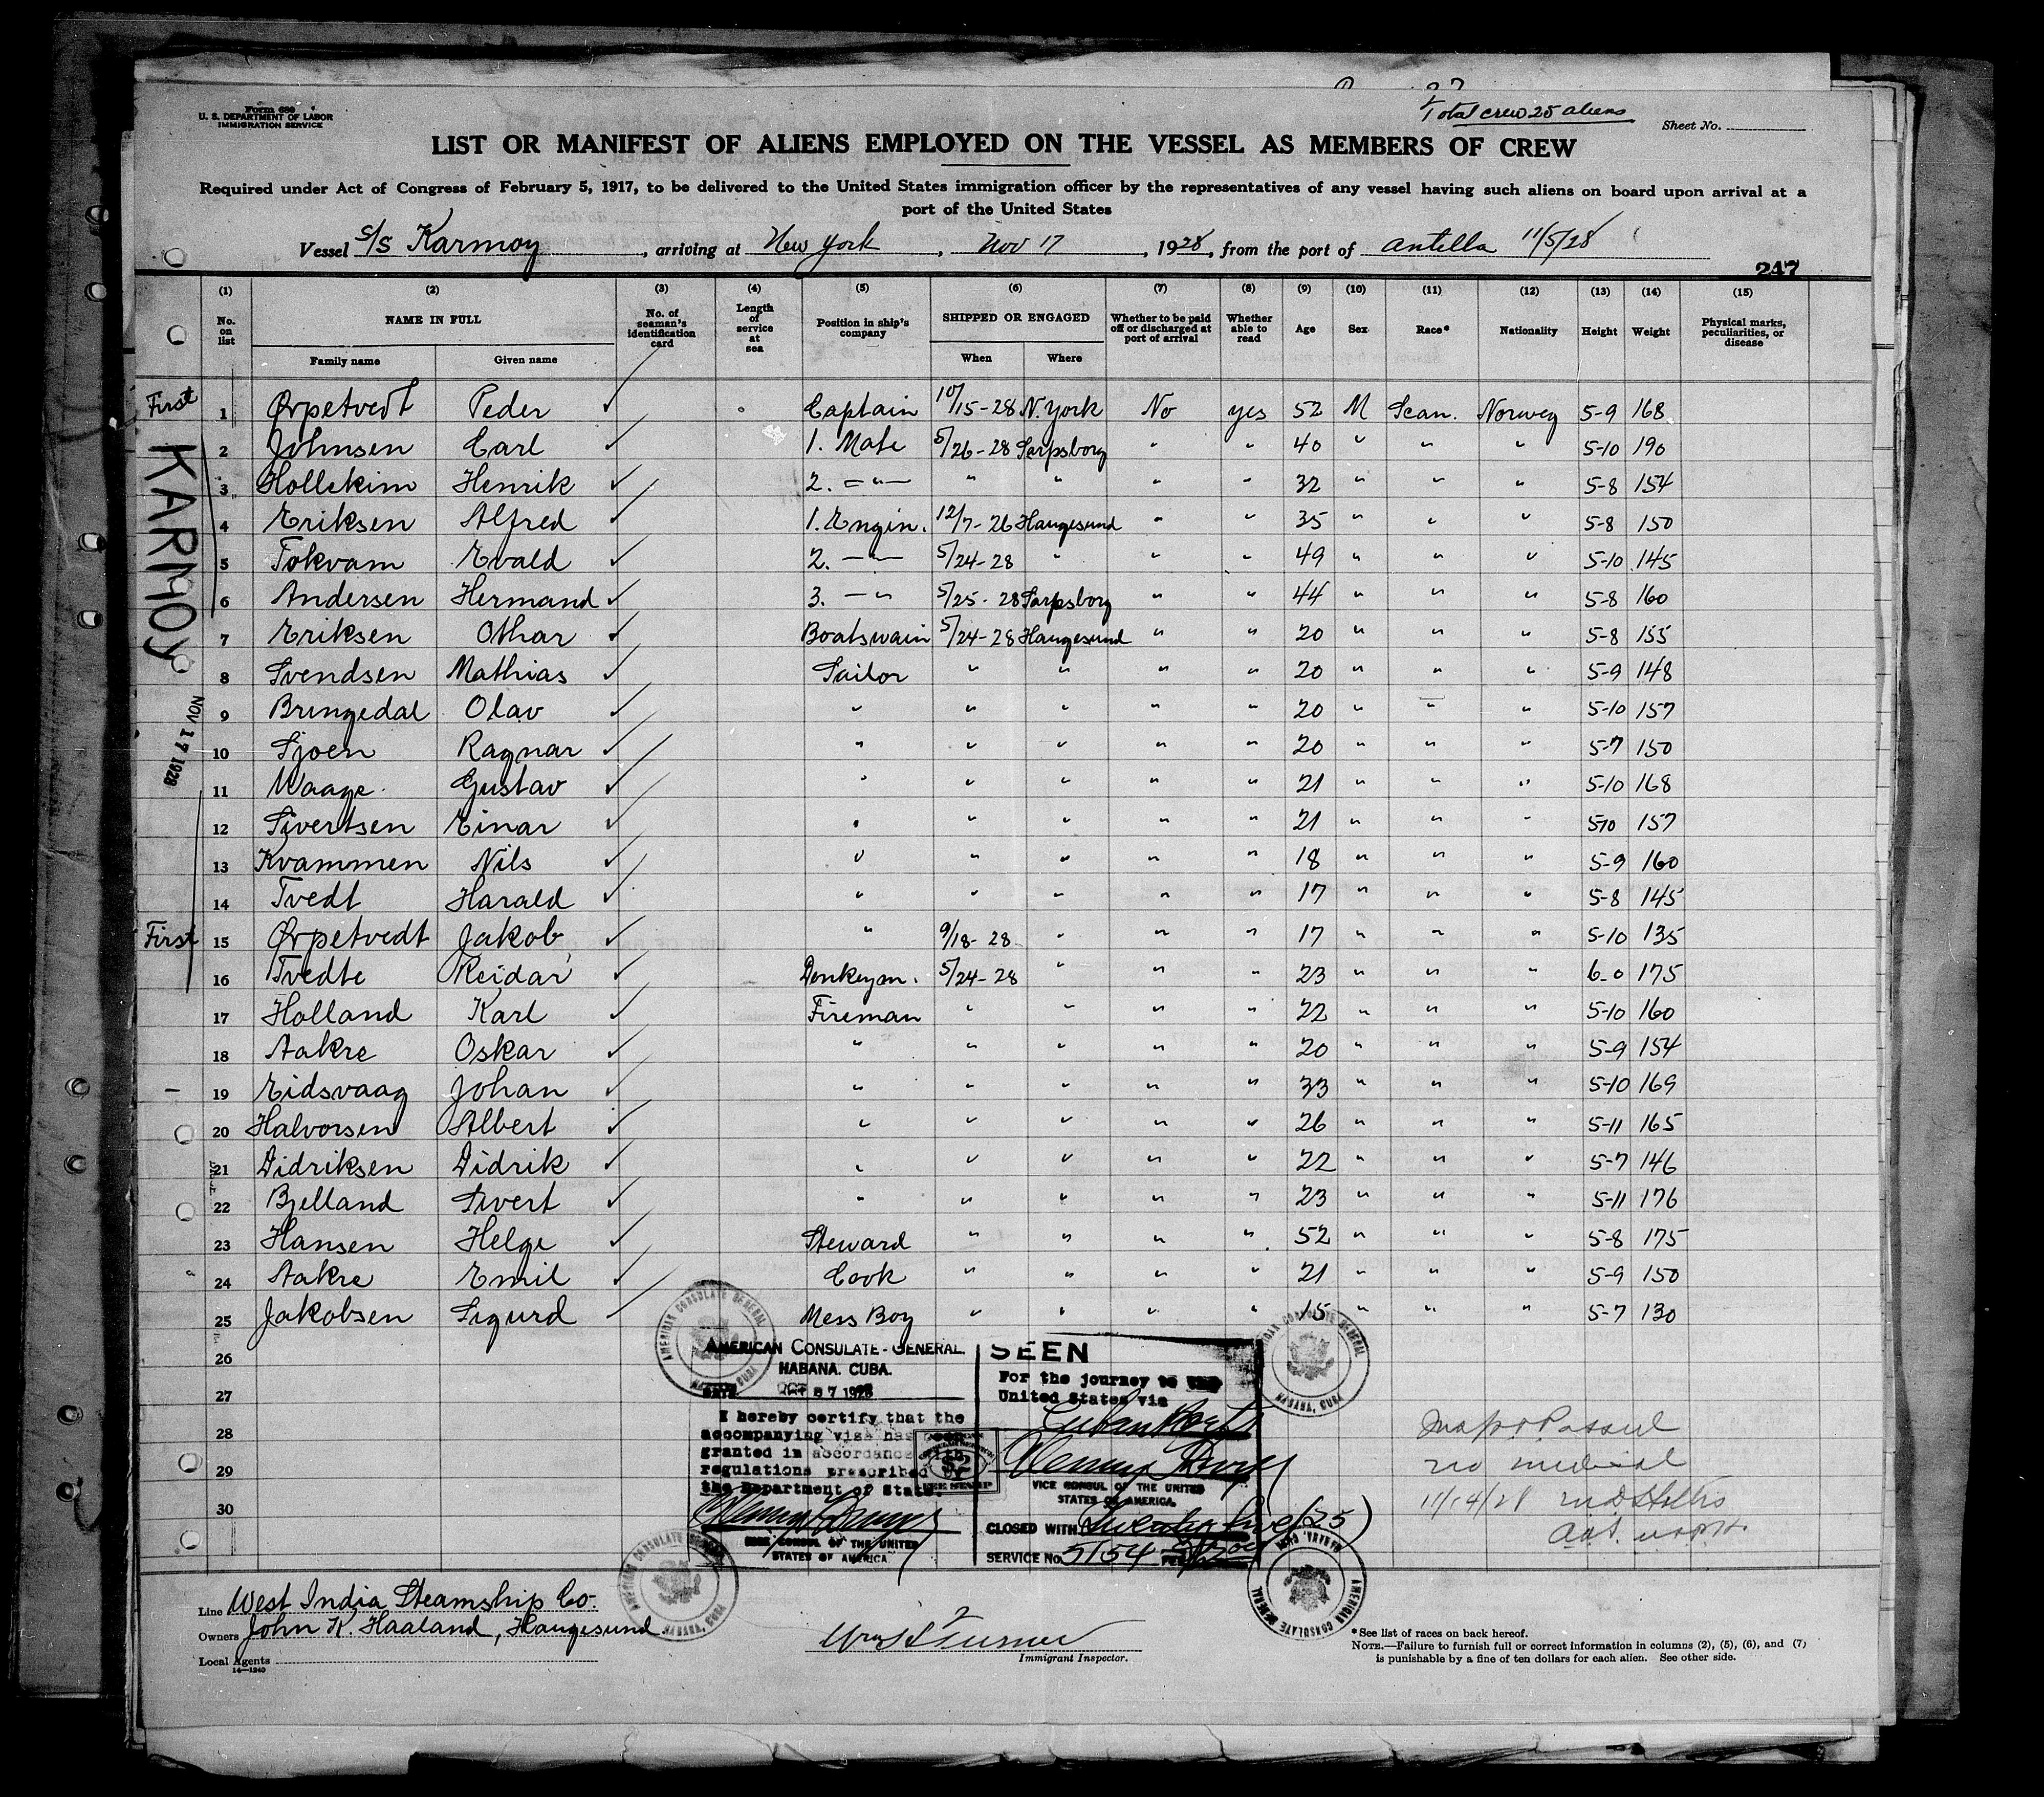 Form 680
U. S. DEPARTMENT OF LABOR
IMMIGRATION SERVICE
Total crew 25 aliens
Sheet No.
LIST OR MANIFEST OF ALIENS EMPLOYED ON THE VESSEL AS MEMBERS OF CREW
Required under Act of Congress of February 5, 1917, to be delivered to the United States immigration officer by the representatives of any vessel having such aliens on board upon arrival at a
port of the United States
Vessel S/S Karmoy, arriving at New York, Nov 17, 1928, from the port of Antilla 11/5/28
247
(1) (2) (3) (4) (5) (6) (7) (8) (9) (10) (11) (12) (13) (14) (15)
No. on list NAME IN FULL Family name Given name No. of seaman's identification card Length of service at sea Position in ship's company SHIPPED OR ENGAGED When Where Whether to be paid off or discharged at port of arrival Whether able to read Age Sex Race* Nationality Height Weight Physical marks, peculiarities, or disease
First 1 Ørpetvedt Peder Captain 10/15-28 N. York No yes 52 M Scan. Norweg 5-9 168
KARMOY
NOV 17 1928
2 Johnsen Carl 1. Mate 5/26-28 Sarpsborg " " 40 " " " 5-10 190
3 Hollekim Henrik 2. -"- " " " " 32 " " " 5-8 154
4 Eriksen Alfred 1. Engin. 12/7-26 Haugesund " " 35 " " " 5-8 150
5 Tokvam Evald 2. -"- 5/24-28 " " " 49 " " " 5-10 145
6 Andersen Hermand 3. -" 5/25-28 Sarpsborg " " 44 " " " 5-8 160
7 Eriksen Othar Boatswain 5/24-28 Haugesund " " 20 " " " 5-8 155
8 Svendsen Mathias Sailor " " " " 20 " " " 5-9 148
9 Bringedal Olav " " " " " 20 " " " 5-10 157
10 Sjoen Ragnar " " " " " 20 " " " 5-7 150
11 Waage Gustav " " " " " 21 " " " 5-10 168
12 Sivertsen Einar " " " " " 21 " " " 5-10 157
13 Kvammen Nils " " " " " 18 " " " 5-9 160
14 Tvedt Harald " " " " " 17 " " " 5-8 145
First 15 Ørpetvedt Jakob " 9/18-28 " " " 17 " " " 5-10 135
16 Tvedte Reidar Donkeym. 5/24-28 " " " 23 " " " 6-0 175
17 Holland Karl Fireman " " " " 22 " " " 5-10 160
18 Aakre Oskar " " " " " 20 " " " 5-9 154
19 Eidsvaag Johan " " " " " 33 " " " 5-10 169
20 Halvorsen Albert " " " " " 26 " " " 5-11 165
21 Didriksen Didrik " " " " " 22 " " " 5-7 146
22 Bjelland Sivert " " " " " 23 " " " 5-11 176
23 Hansen Helge Steward " " " " 52 " " " 5-8 175
24 Aakre Emil Cook " " " " 21 " " " 5-9 150
25 Jakobsen Sigurd Mess Boy " " " " 15 " " " 5-7 130
26
27
28
29
30
AMERICAN CONSULATE GENERAL HABANA, CUBA
AMERICAN CONSULATE-GENERAL.
HABANA, CUBA.
DATE 1928
I hereby certify that the
accompanying visa has been
granted in accordance with
regulations prescribed by
the Department of State.
VICE CONSUL OF THE UNITED
STATES OF AMERICA
$2
FEE STAMP
SEEN
For the journey to the
United States via
Cuban Ports
VICE CONSUL OF THE UNITED
STATES OF AMERICA.
CLOSED WITH Twenty five (25)
SERVICE No. 5154
AMERICAN CONSULATE GENERAL HABANA, CUBA
AMERICAN CONSULATE GENERAL HABANA, CUBA
AMERICAN CONSULATE GENERAL HABANA, CUBA
Passed
no medical
Line West India Steamship Co.
Owners John K. Haaland, Haugesund
Local Agents
14-1240
Turner
Immigrant Inspector.
*See list of races on back hereof.
NOTE.—Failure to furnish full or correct information in columns (2), (5), (6), and (7)
is punishable by a fine of ten dollars for each alien. See other side.